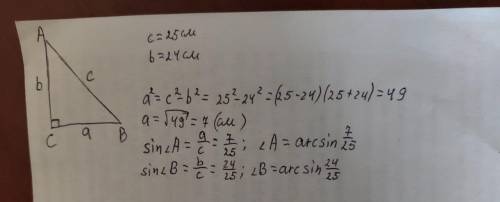 A
c = 25 см
b = 24 см
b
c
C
a
B
a² = c² - b² = 25² - 24² = (25 - 24)(25 + 24) = 49
a = √49 = 7 (см)
sin∠A = a/c = 7/25; ∠A = arcsin 7/25
sin∠B = b/c = 24/25; ∠B = arcsin 24/25